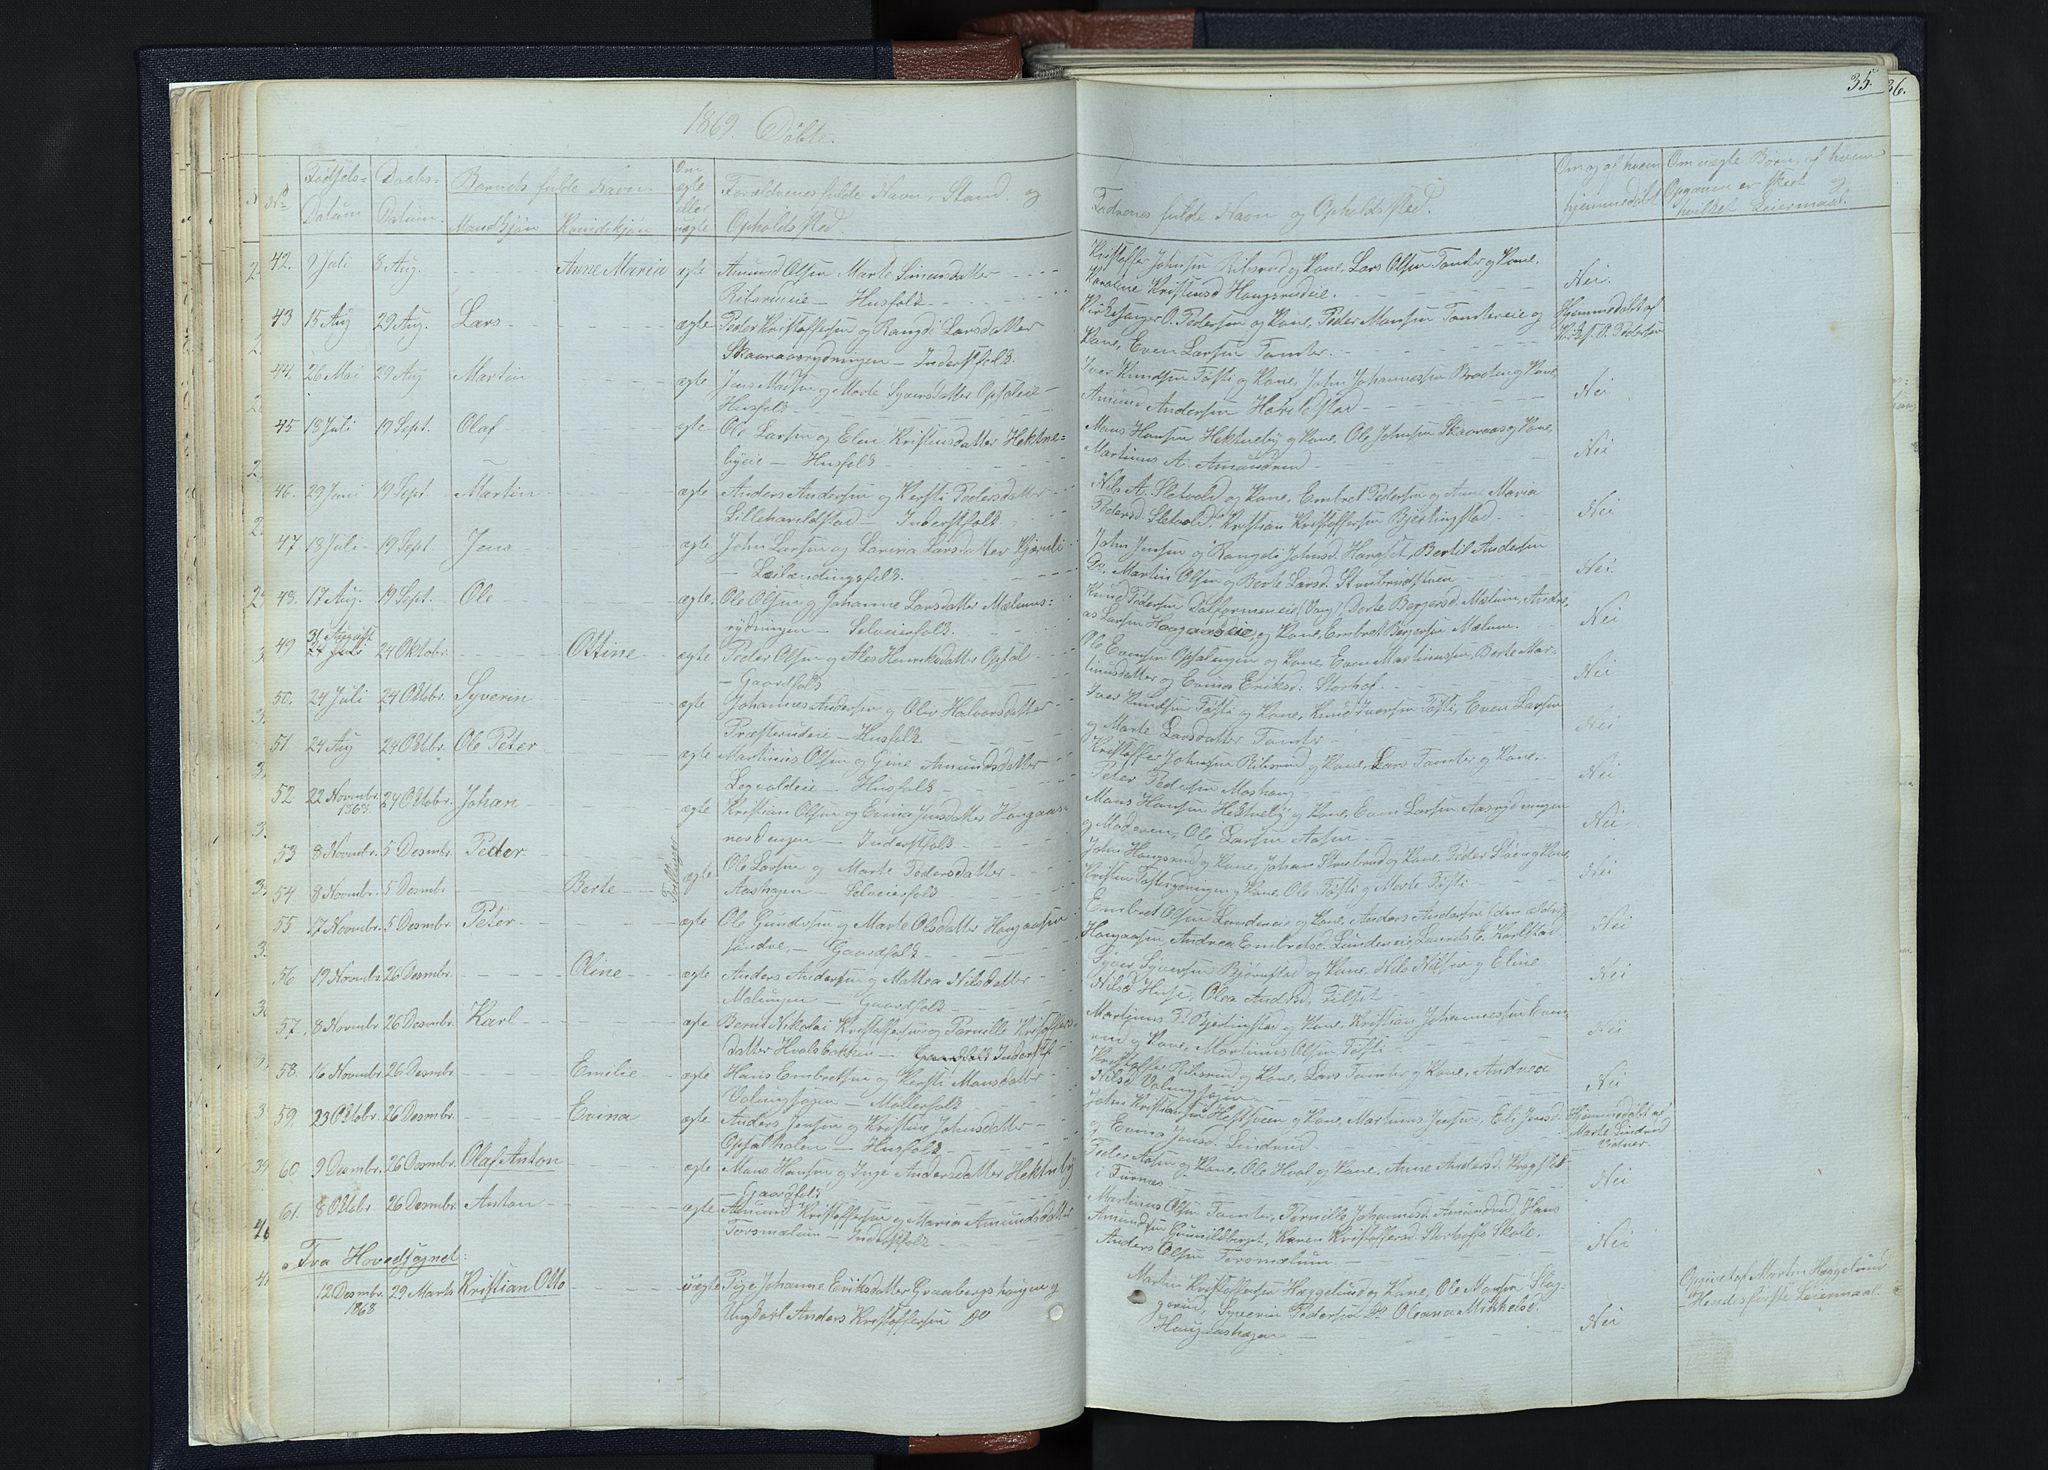 35.
36.
1869. Döbte.
No
Fødsels-
Datum
Daabs-
Datum.
Barnets fulde Navn.
Mandkjøn
Kvindekjøn
Om
ægte
eller
uægte
Forældrenes fulde Navn, Stand og
Opholdssted.
Fadrenes fulde Navn og Opholdssted.
Om og af hvem
hjemmedøbt
Om uægte Børn, af hvem
Opgaven er skeet og
hvilket Leiermaal.
42. 9 Juli 8 Aug. Anne Maria ægte Amund Olsen Marte Simensdatter
Rilsrudeie – Husfolk.
Kristoffer Johnsen Rilsrud og Kone, Lars Olsen Tomter og Kone,
Karoline Kristensd Haugsrudeie.
Nei.
43 15 Aug 29 Aug. Lars ægte Peder Kristoffersen og Rangdi Larsdatter
Skaaraasrydningen – Inderstfolk.
Kirkesanger O. Pedersen og Kone, Peder Monsen Tomtereie og
Kone, Even Larsen Tomter.
Hjemmedøbt af
Kirkes. O. Pedersen
44. 26 Mai 29 Aug Martin ægte Jens Madsen og Marte Syversdatter Opsaleie
Husfolk
Iver Knudsen Tøfti og Kone, John Johannessen Braaten og Kone,
Andersen Haraldstad
Nei
45 18 Juli 19 Sept. Olaf ægte Ole Larsen og Elen Kristensdatter Hektne-
byeie – Husfolk
Mons Hansen Hektneby og Kone, Ole Johnsen Skaaraas og Kone,
Martinus A. Amundrud
Nei
46. 29 Juni 19 Sept. Martin ægte Anders Andersen og Kersti Pedersdatter
Lilleharaldstad – Inderstfolk
Nils A. Sletvold og Kone, Embret Pedersen og Anne Maria
Pedersd. Sletvold. Kristian Kristoffersen Bjertingstad.
Nei
47 18 Juli 19 Sept Jens ægte John Larsen og Lovina Larsdatter Kjernli
– Leilændingsfolk.
John Jensen og Rangdi Johnsd. Hangset, Bertil Andersen
Do. Martin Olsen og Berte Larsd. Stenbrudstuen
Nei.
48. 17 Aug. 19 Sept. Ole ægte. Ole Olsen og Johanne Larsdatter Mælums-
rydningen – Selveierfolk.
Knud Pedersen (Vang) Dorte Bergersd. Mælum, Andre-
as Larsen Haugaaseie, og Kone, Embret Bergersen Mælum.
Nei
49 31 August 24 Juli 24 Oktobr. Ottine ægte Peder Olsen og Ales Henriksdatter Opsal
– Gaardfolk
Ole Evensen Opsalengen og Kone, Even Martinussen, Berte Mar-
tinusdatter og Evina Eriksd. Storhof.
Nei
50. 24 Juli 24 Oktbr. Syverin ægte Johannes Andersen og Olea Halvorsdatter
Præsterudeie – Husfolk
Iver Knudsen Tøfti og Kone, Knud Iversen Tøfti, Even Larsen
og Marte Larsdatter Tomter
Nei
51 24 Aug 24 Oktbr. Ole Peter ægte Martinus Olsen og Gine Amundsdatter
Husfolk
Kristoffer Johnsen Rilsrud og Kone, Lars Tomter og Kone,
Peter Pedersen Moshaug
Nei
52 22 Novmbr. 1868 24 Oktobr. Johan ægte Kristian Olsen og Evina Jensdatter Haugaas-
nordengen – Inderstfolk
Mons Hansen Hektneby og Kone, Even Larsen Aasrydningen
og Moderen, Ole Larsen Aasen
Nei
53 8 Novmbr. 5 Desmbr. Peder
Tvillinger
ægte Ole Larsen og Marte Pedersdatter
Aashagen – Selveierfolk
John Haugsrud og Kone, Johan Stenbrud og Kone, Peder Støen og Kone,
Kristen Tøftirydningen og Kone, Ole Tøfti og Marte Tøfti
Nei
54 8 Novmbr. 5 Desmbr Berte
55 17 Novmbr. 5 Desmbr. Peter ægte Ole Gundersen og Marte Olsdatter Haugaasen
søndre, – Gaardfolk
Embret Olsen Lundeneie og Kone, Anders Andersen
Haugaasen, Andrea Embretsd. Lundeneie, Laurits E. Karlstad
Nei
56 19 Novmbr. 26 Desmbr. Oline ægte Anders Andersen og Mathea Nilsdatter
Malungen – Gaardfolk
Syver Syversen Bjørnstad og Kone, Nils Nilsen og Eline
Nilsd Huse, Olea Andersd. Filset
Nei
57. 8 Novmbr 26 Desmbr. Karl ægte Bernt Nikolai Kristoffersen og Pernille Kristoffers-
datter Hvalsbakken – Gaardfolk Inderstf.
Martinus P. Bjertingstad og Kone, Kristian Johannessen Even-
rud og Kone, Martinus Olsen Tøfti
Nei
58. 16 Novmbr 26 Desmbr. Emilie ægte Hans Embretsen og Kersti Monsdatter
Møllerfolk
Kristoffer Rilsrud og Kone, Lars Tomter og Kone, Andrea
Nilsd
Nei
59. 23 Oktobr. 26 Desmbr. Evina ægte Anders Jensen og Kristine Johnsdatter
Opsalhalen – Husfolk
John Kristiansen Heststuen og Kone, Martinus Jensen, Eli Jensd.
og Evina Jensd. Lindrud
Hjemmedøbt af
Marte Lindrud
60 9 Desmbr. 26 Desmbr. Olaf Anton ægte Mons Hansen og Inge Andersdatter Hektneby
– Gaardfolk
Peder Aasen og Kone, Ole Hval og Kone, Anne Andersd. Kragset
i Furnes
Nei
61. 8 Oktobr. 26 Desmbr. Anton ægte Amund Kristoffersen og Maria Amundsdatter
Torsmælum – Inderstfolk
Martinus Olsen Tomter, Pernille Johannesd. Amundrud, Hans
Amundsen Gunnildberget, Karen Kristoffersd. Storhofs Skole.
Anders Olsen Torsmælum
Nei
Fra Hovedsognet:
12 Desmbr. 1868 29 Marts Kristian Otto uægte Pige Johanne Eriksdatter Graabergshaugen og
Ungkarl Anders Kristoffersen do
Martin Kristoffersen Heggelund og Kone, Ole Monsen Slag-
gerud, Syverin Pedersen do Oleana Mikkelsd.
Haugaashagen
Nei
Opgivet af Martin Heggelund
Hendes første Leiermaal.